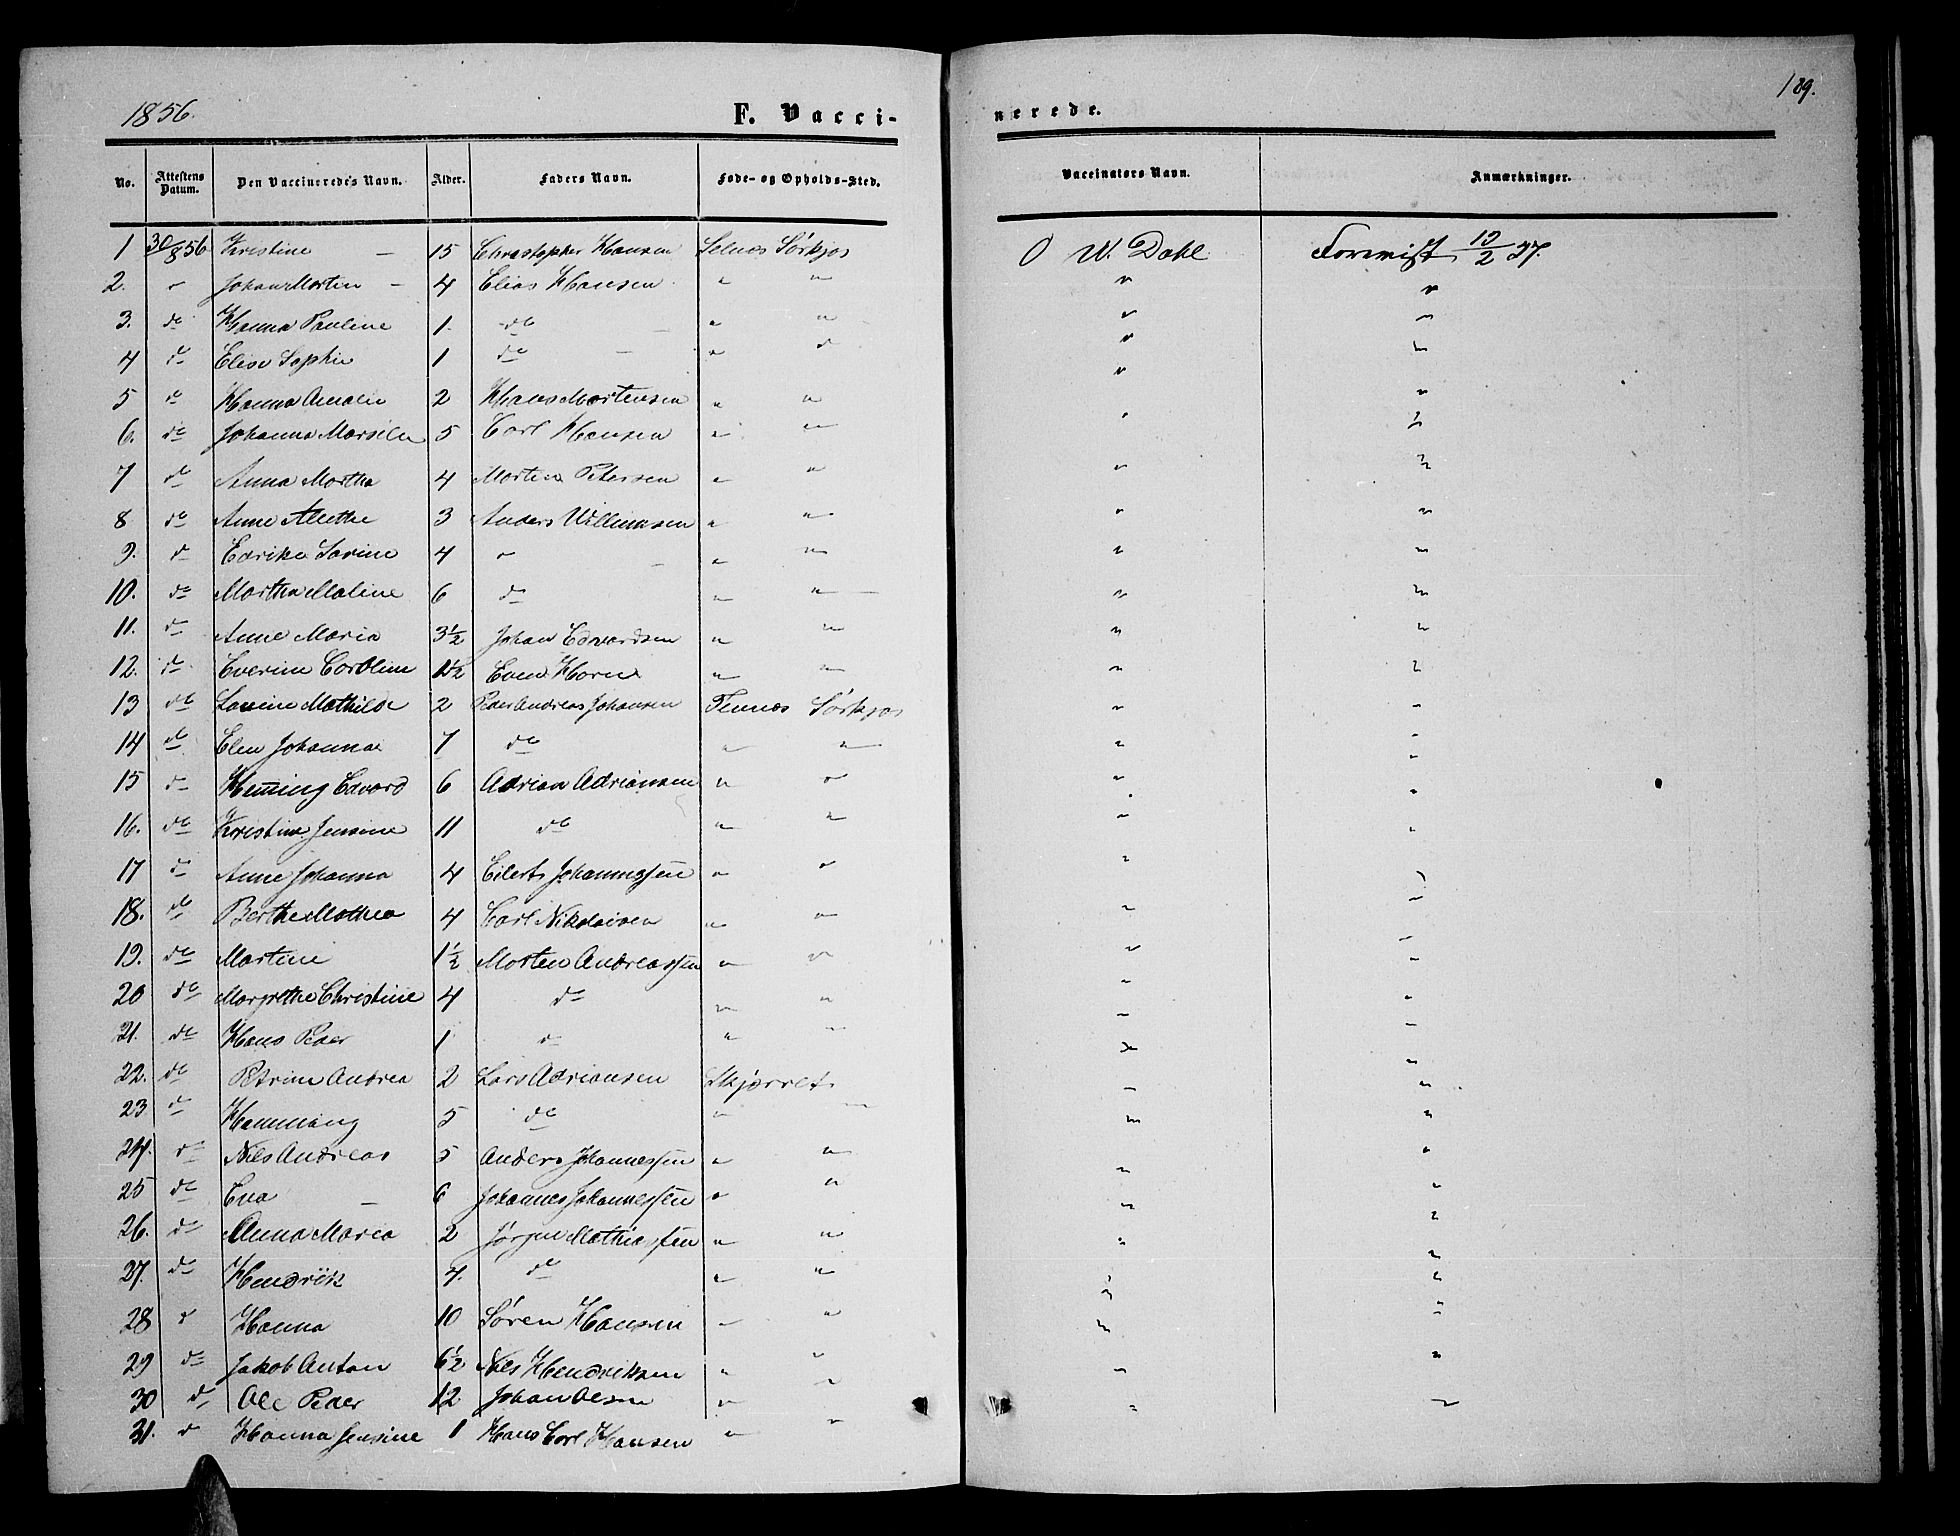 1856.
F. Vacci-
nerede.
189.
No. Attestens Datum. Den Vaccineredes Navn. Alder. Faders Navn. Føde- og Opholds-Sted. Vaccinators Navn. Anmærkninger.
1 30/8 56 Kristine – 15 Christopher Hansen Selnes Sörkjos O W. Dahl 19/2 37.
2. " Johan Morten – 4 Elias Hansen " " " "
3. do Hanna Pauline 1. do " " " "
4 do Elise Sophie 1 do " " " "
5 do Hanna Amalie 2 Hans Mortensen " " " "
6. do Johanna 5 Carl Hansen " " " "
7 do Anna Martha 4 Morten Petersen " " " "
8 do Anne Alethe 3 Anders Willumsen " " " "
9. do Edrike Sarine 4 " " " " "
10. do Martha Maline 6 do " " " "
11. do Anne Maria 3 1/2 Johan Edvardsen " " " "
12. do Everine Caroline 1 1/2 Even Horn " " " "
13 do Lavine Mathilde 2 Peder Andreas Johansen Tennes Sörkjos " "
14 do Elen Johanna 7 do " " " "
15 do Henning Edvard 6 Adrian Adriansen " " " "
16. do Kristine Jensine 11 do " " " "
17 do Anne Johanna 4 Eilert Johannessen " " " "
18. do Berthe Mathea 4 Carl Nikolaisen " " " "
19. do Martine 1 1/2 Morten Andreassen " " " "
20 do Margrethe Christine 4 do " " " "
21. do Hans Peder 1 do " " " "
22. do Petrine Andrea 2 Lars Adriansen " "
23 do Hemming 5 do " " " "
24. do Nils Andreas 5 Anders Johannessen " " " "
25 do Eva – 6 Johannes Johannessen " " " "
26. do Anna Maria 2 Jörgen Mathiassen " " " "
27. do Hendrik 4. do " " " "
28 do Hanna 10 Sören Hansen " " " "
29 do Jakob Anton 6 1/2 Nils Hendriksen " " " "
30 do Ole Peder 12 Johan Olsen " " " "
31. do Hanna Jensine 1 Hans Carl Hansen " "